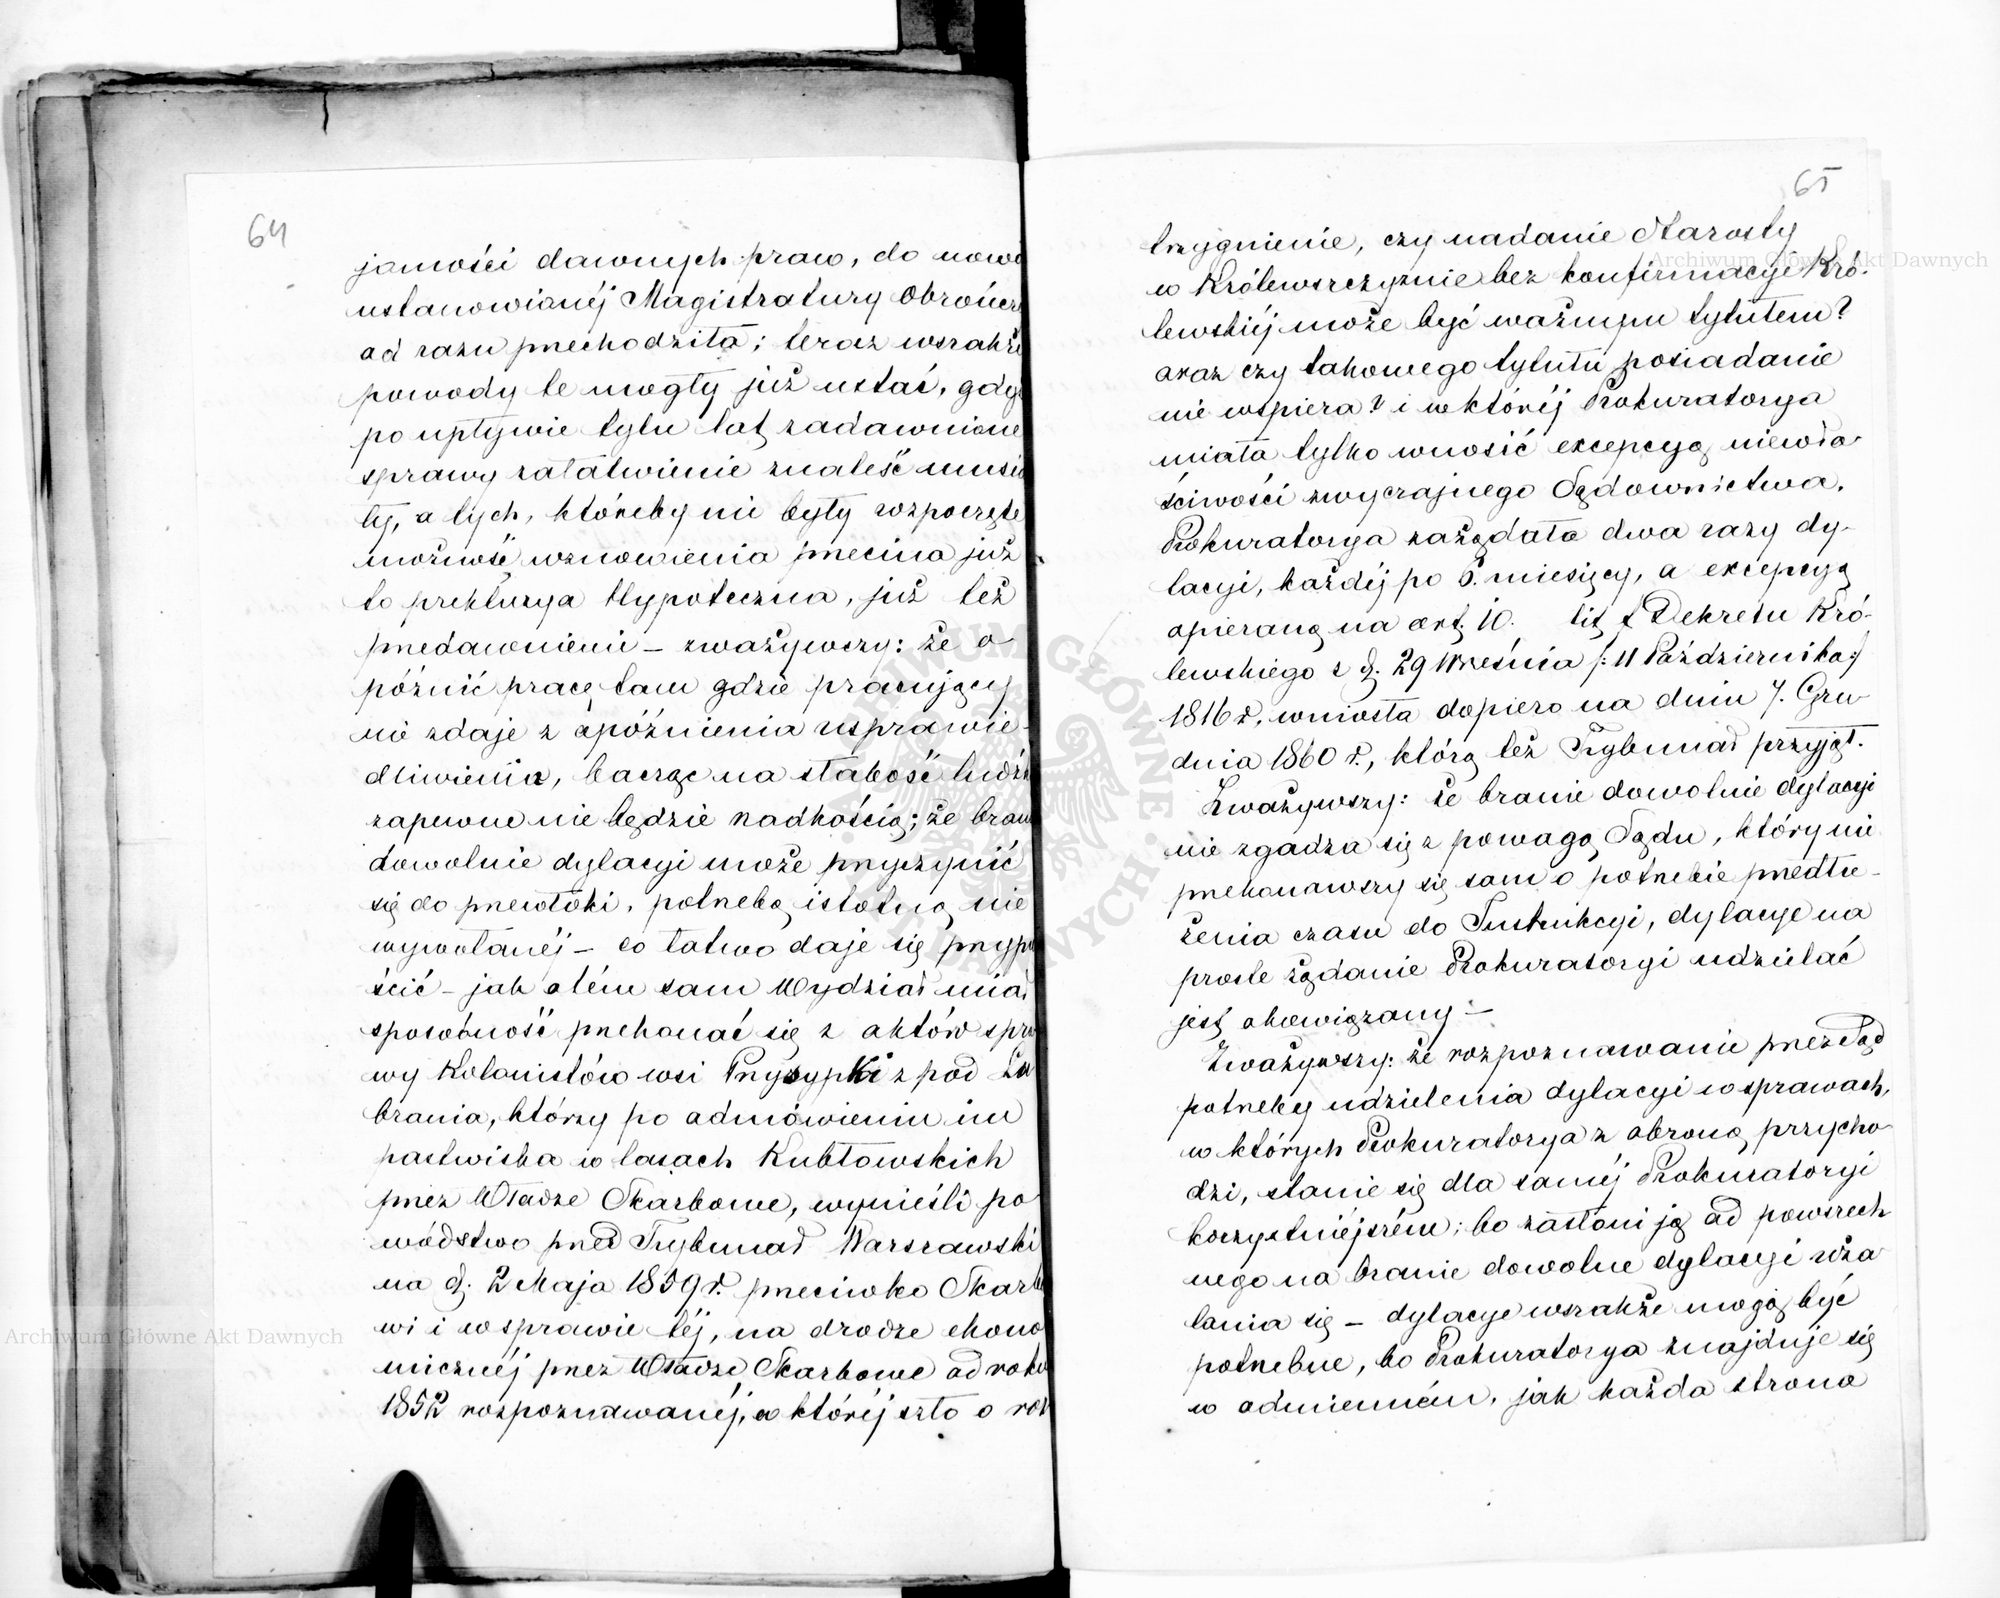 64
jomości dawnych praw, do nowo
ustanowionéj Magistratury Obrończ
od razu przechodziła; teraz wszakże
powody te mogły już ustać, gdy
po upływie tylu lat zadawnione
sprawy załatwienie znaleść musia
ły, a tych, któreby nie były rozpoczęte
możność wznowienia przecina już
to prekluzya Hypoteczna, już też
przedawnienie – zważywszy: że o
późnić pracę tam gdzie pracujący
nie zdaje z opóźnienia usprawie-
dliwienia, bacząc na słabość ludzk
zapewne nie będzie rzadkością; że bran
dowolnie dylacyi może przyczynić
się do przewłoki, potrzebą istotną nie
wywołanéj – co łatwo daje się przypu
ścić – jak o tém sam Wydział miał
sposobność przekonać się z aktów spra
wy Kolonistów wsi Przysypki z pod Lu
brania, którzy po odmówieniu im
pastwiska w lasach Kubłowskich
przez Władze Skarbowe, wynieśli po
wództwo przed Trybunał Warszawski
na d. 2 Maja 1859 r. przeciwko Skarb
wi i w sprawie téj, na drodze ekono
micznéj przez Władze Skarbowe od roku
1852 rozpoznawanéj, w któréj szło o roz
65
trzygnienie, czy nadanie Starosty
w Królewszczyznie bez konfirmacyi Kró-
lewskiéj może być ważnym tytułem?
oraz czy takowego tytułu posiadanie
nie wspiera? i w któréj Prokuratorya
miała tylko wnosić excepcyą niewła-
ściwości zwyczajnego Sądownictwa.
Prokuratorya zażądała dwa razy dy-
lacyi, każdéj po 6. miesięcy, a excepcyą
opieraną na art. 10. lit. f Dekretu Kró-
lewskiego z d. 29 Września /: 11 Października :/
1816 r. wniosła dopiero na dniu 7. Gru
dnia 1860 r., którą też Trybunał przyjął.
Zważywszy: że branie dowolnie dylacyi
nie zgadza się z powagą Sądu, który nie
przekonawszy się sam o potrzebie przedłu-
żenia czasu do Instrukcyi, dylacye na
proste żądanie Prokuratoryi udzielać
jest obowiązany –
Zważywszy: że rozpoznawanie przez Sąd
potrzeby udzielenia dylacyi w sprawach,
w których Prokuratorya z obroną przycho
dzi, stanie się dla saméj Prokuratoryi
korzystniéjszém; bo zasłoni ją od powszech
nego na branie dowolne dylacyi uża
lania się – dylacye wszakże mogą być
potrzebne, bo Prokuratorya znajduje się
w odmienném, jak każda strona
Archiwum Główne Akt Dawnych
Archiwum Główne Akt Dawnych
ARCHIWUM GŁÓWNE AKT DAWNYCH